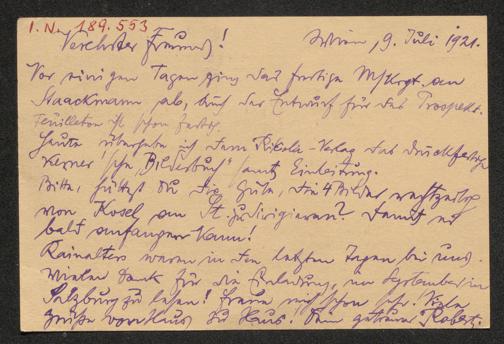 I.N. 189.553
Verehrter Freund! Wien, 9. Juli 1921.
Vor einigen Tagen ging das fertige Mskrpt. an
Staackmann ab, auch der Entwurf für das Prospekt.
Feuilleton ist schon fertig.
Heute übergebe ich dem Rikola-Verlag das druckfertige
Kerner "Bilderbuch" samt Einleitung.
Bitte, hättest Du die Güte, die 4 Bilder
von Kosel an St. zu dirigieren? Damit er
bald anfangen kann!
Rainalters waren in den letzten Tagen bei uns.
Vielen Dank für die Einladung, im September in
Salzburg zu lesen! Freue mich schon sehr. Viele
Grüße von Haus zu Haus! Dein getreuer Robert.